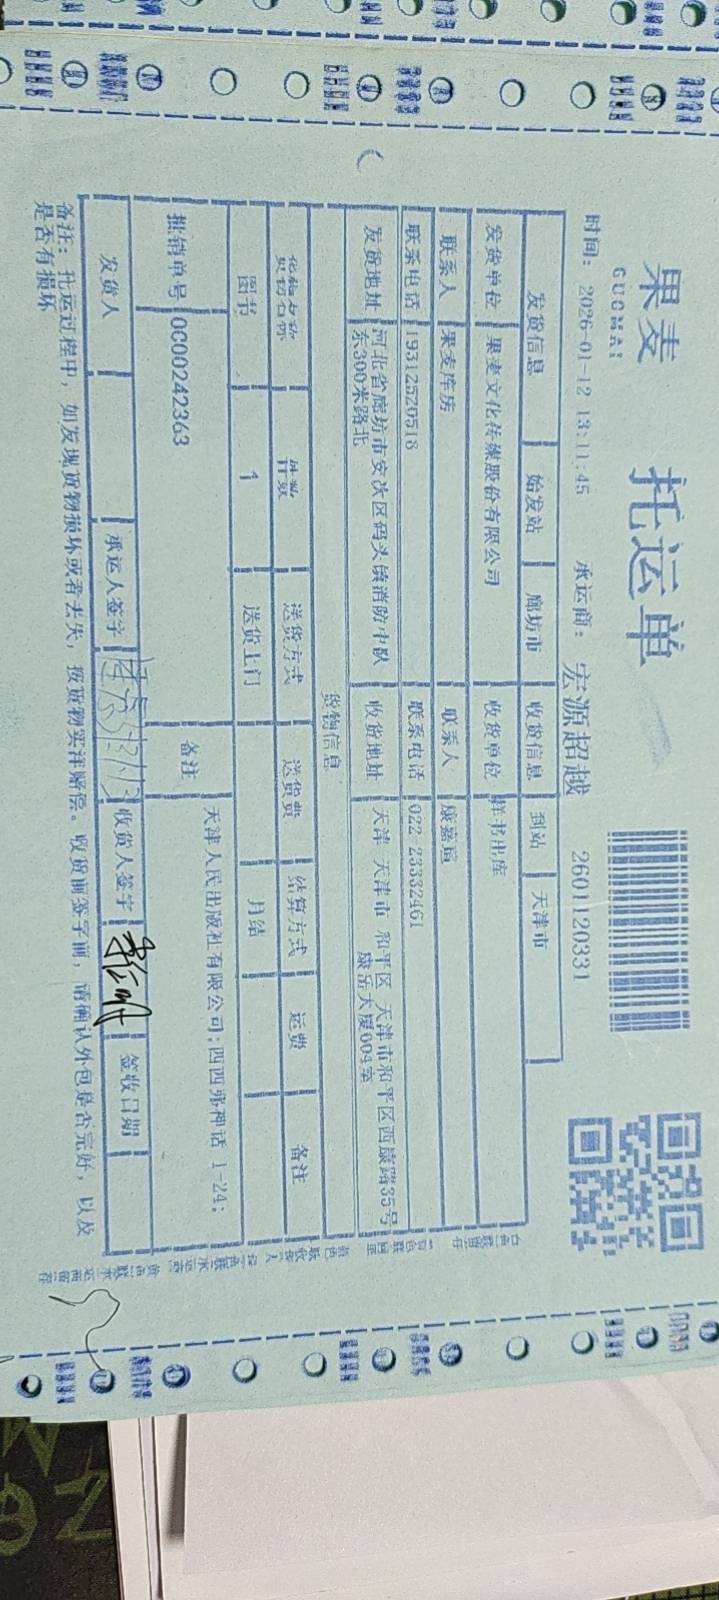 果麦
GUOMAI
托运单
时间: 2026-01-12 13:11:45 承运商: 宏源超越 2601120331
发货信息 始发站 廊坊市 收货信息 到站 天津市
发货单位 果麦文化传媒股份有限公司 收货单位 样书出库
联系人 果麦库房 联系人 康嘉瑄
联系电话 19312520518 联系电话 022-23332461
发货地址 河北省廊坊市安次区码头镇消防中队东300米路北 收货地址 天津 天津市 和平区 天津市和平区西康路35号康岳大厦604室
货物信息
货物名称 件数 送货方式 送货费 结算方式 运费 备注
图书 1 送货上门 月结
批销单号 0000242363 备注 天津人民出版社有限公司;西西弗神话 1-24;
发货人 承运人签字 收货人签字 签收日期
备注: 托运过程中, 如发现货物损坏或者丢失, 按货物实洋赔偿。收货前签字前, 请确认外包是否完好, 以及
是否有损坏